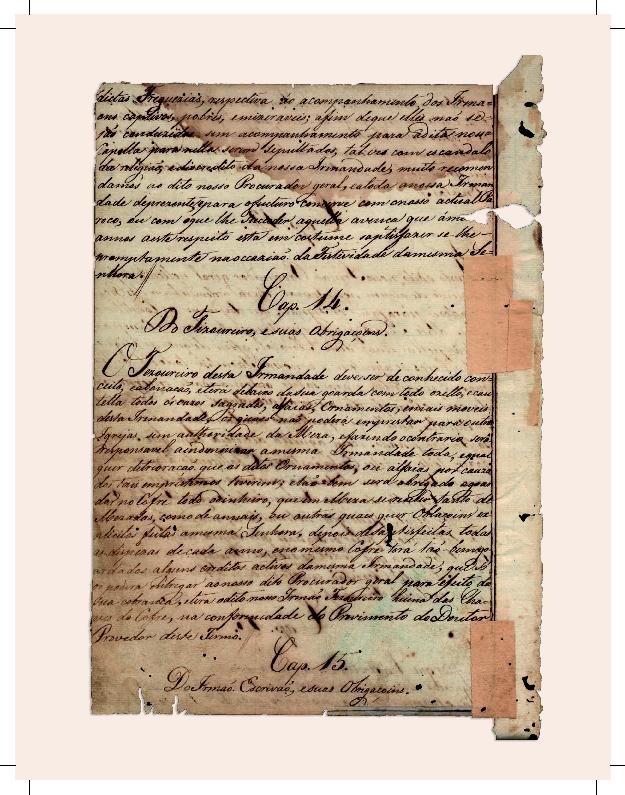 dictas Freguezias, respectiva ao acompanhamento dos Irma=
ons captivos, pobres, e mizeraveis; afim de que elles não se=
jão conduzidos sem acompanhamento para a dita nossa
Capella para nella serem sepultados, talvez com escandalo
da religião, e discredito da nossa Irmandade, muito recomen
damos ao dito nosso Procurador geral, e a toda a nossa Irman
dade de prezente, e para o futuro convirem com o nosso actual Pa
roco, ou com o que lhe suceder aquella avença que
annos a este respeito está em costume satisfazer se lhe
promptamente na occazião da Festividade da mesma Se=
nhora.//
Cap. 14.
Do Tizoureiro, e suas Obrigaçoins.
O Tizoureiro desta Irmandade deve ser de conhecido con=
ceito, e abonação, e terá debaixo da sua guarda com todo o zello, e cau
tella todos os vazos sagrados, alfaias, Ornamentos, e mais moveis
desta Irmandade, os quaes não poderá emprestar para outra
Igrejas, sem authoridade da Meza, e fazendo o contrario será
responsavel a indemnizar a mesma Irmandade toda, e qual
quer detrioração, que os ditos Ornamentos, ou alfaias por cauza
de taes emprestimos tiverem; e também será obrigado a guar
dar no Cofre todo o dinheiro, que em Meza se receber tanto de
Mezadas, como de annuais, ou outras quaes quer Oblaçoins e
esmollas feitas a mesma Senhora, depois de satisfeitas todas
as dispezas de cada anno, e no mesmo Cofre terá tão bem
ardados alguns creditos activos da mesma Irmandade, que só
o poderá entregar ao nosso dito Procurador geral para efeito da
sua cobrança, e terá o dito nosso Irmão Tizoureiro huma das Cha
ves do Cofre, na conformidade do Provimento do Doutor
Provedor deste Termo.
Cap. 15.
Do Irmão Escrivão, e suas Obrigaçoins.